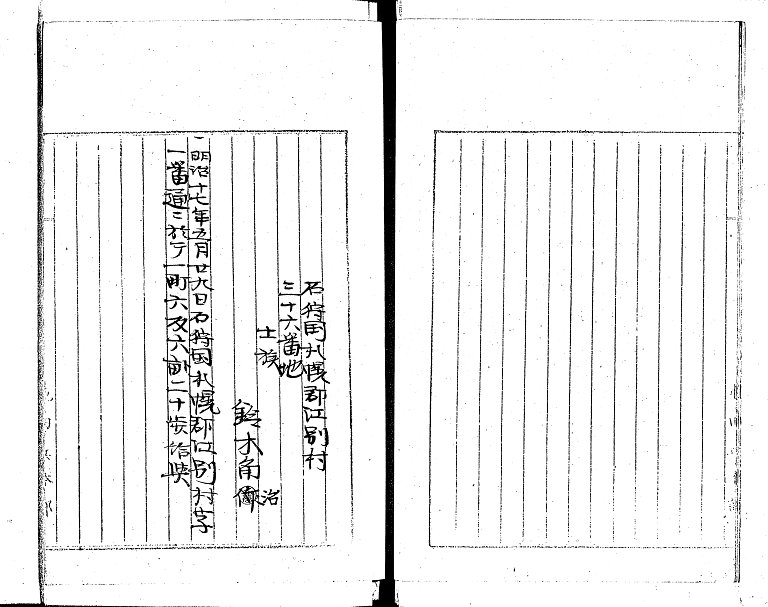 石狩国札幌郡江別村
三十六番地
士族
鈴木角
治
一明治十七年五月廿九日石狩国札幌郡江別村字
一番通ニ於テ一町六反六畝二十歩給与